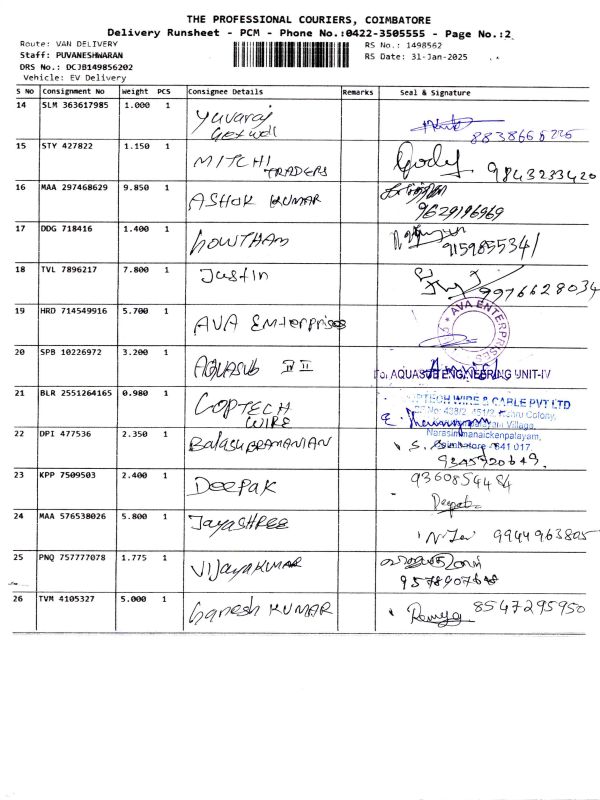 THE PROFESSIONAL COURIERS, COIMBATORE
Delivery Runsheet - PCM - Phone No.:0422-3505555 - Page No.:2
Route: VAN DELIVERY
RS No.: 1498562
Staff: PUVANESHWARAN
RS Date: 31-Jan-2025
DRS No.: DCJB149856202
Vehicle: EV Delivery
S NO Consignment No Weight PCS Consignee Details Remarks Seal & Signature
14 SLM 363617985 1.000 1 Yuvaraj
15 STY 427822 1.150 1 MITCHI TRADERS Gody 9843233420
16 MAA 297468629 9.850 1 ASHOK KUMAR 9629196969
17 DDG 718416 1.400 1 GOWTHAM
18 TVL 7896217 7.800 1 Justin 9976628034
19 HRD 714549916 5.700 1 AVA Enterprises AVA ENTERPRISES
20 SPB 10226972 3.200 1 AQUASUB IV For AQUASUB ENGINEERING UNIT-IV
21 BLR 2551264165 0.980 1 COPTECH WIRE COPTECH WIRE & CABLE PVT LTD
Narasimmanaickenpalayam,
Coimbatore - 641 017.
22 DPI 477536 2.350 1 BalasUBRAMANIAN
23 KPP 7509503 2.400 1 DEEPAK 9360854484
Deepak
24 MAA 576538026 5.800 1 JAYASHREE 9944963805
25 PNQ 757777078 1.775 1 VIJAYAKUMAR
26 TVM 4105327 5.000 1 Ganesh KUMAR Ramya 8547295950